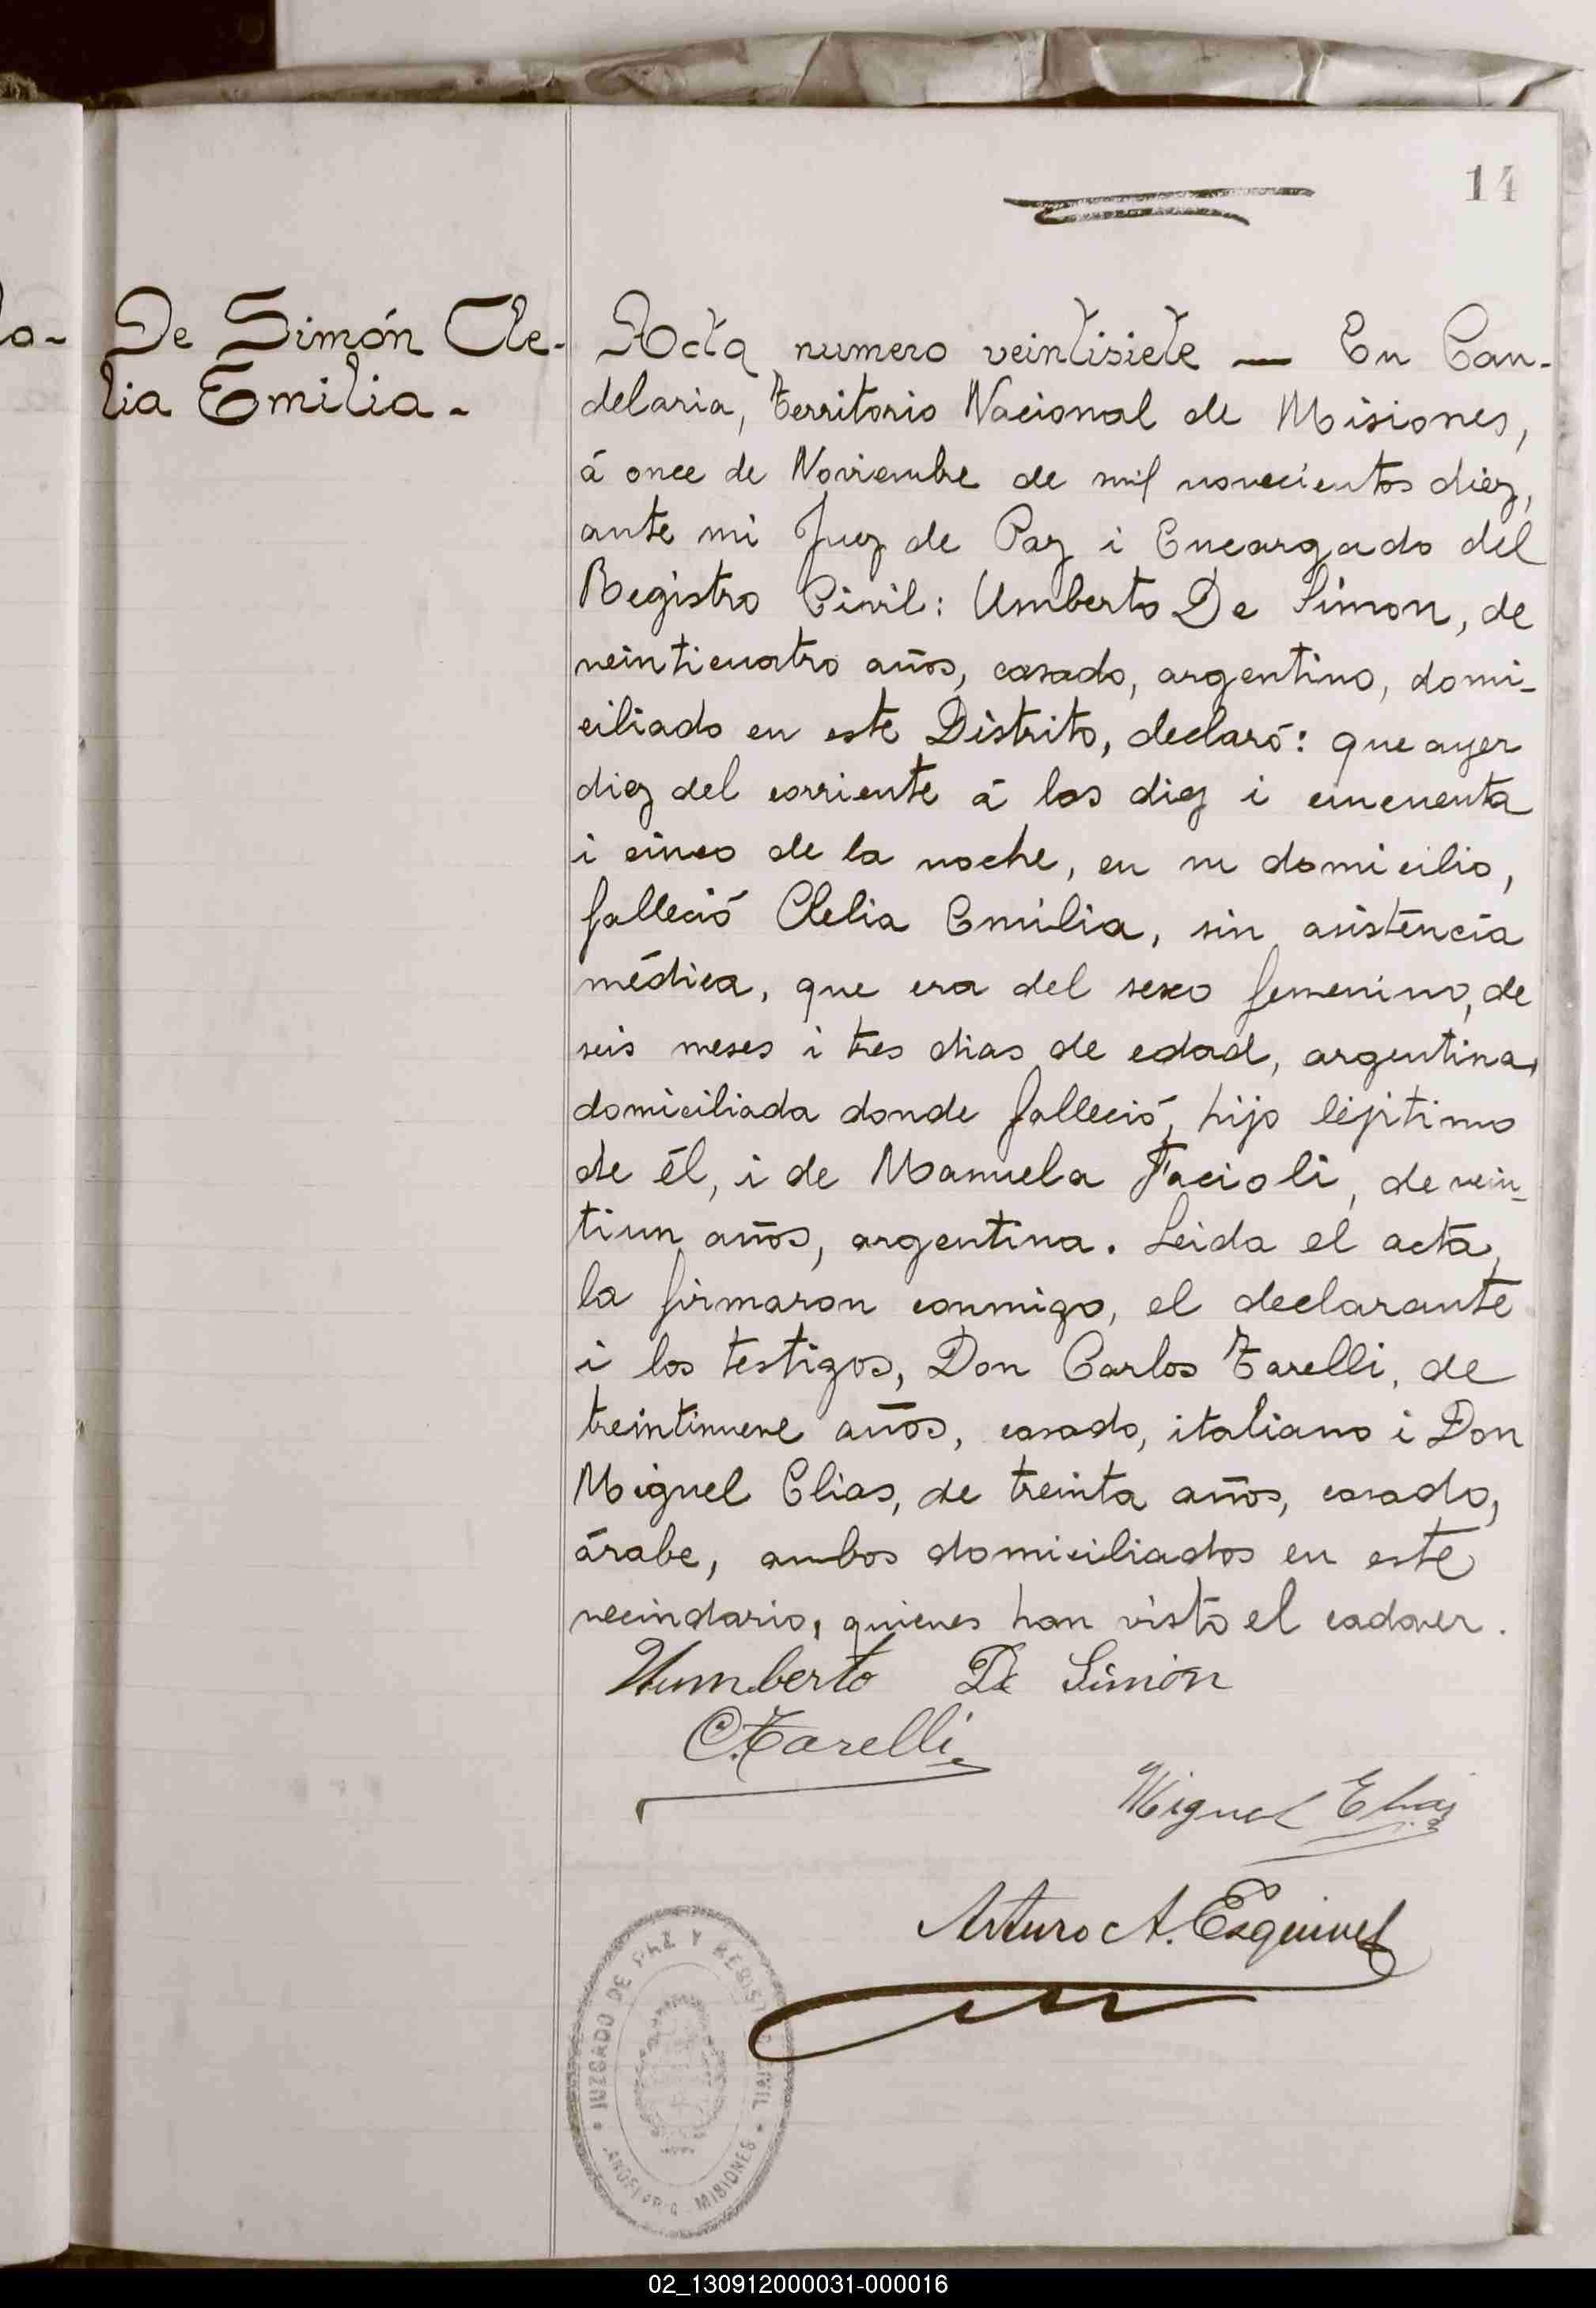 14
la-
De Simón Cle-
lia Emilia.-
Acta numero veintisiete — En Can-
delaria, territorio Nacional de Misiones,
á once de Noviembre de mil novecientos diez,
ante mi Juez de Paz i Encargado del
Registro Civil: Umberto De Simon, de
veinticuatro años, casado, argentino, domi-
ciliado en este Distrito, declaró: que ayer
diez del corriente á las diez i cincuenta
i cinco de la noche, en su domicilio,
falleció Clelia Emilia, sin asistencia
médica, que era del sexo femenino, de
seis meses i tres dias de edad, argentina,
domiciliada donde falleció, hijo lejitimo
de él, i de Manuela Facioli, de vein-
tiun años, argentina. Leida el acta,
la firmaron conmigo, el declarante
i los testigos, Don Carlos Tarelli, de
treintinueve años, casado, italiano i Don
Miguel Elias, de treinta años, casado,
árabe, ambos domiciliados en este
vecindario, quienes han visto el cadaver.
Humberto De Simón
C. Tarelli
Miguel Elias
Arturo A. Esquivel
JUZGADO DE PAZ Y REGISTRO CIVIL
CANDELARIA MISIONES
02_130912000031-000016